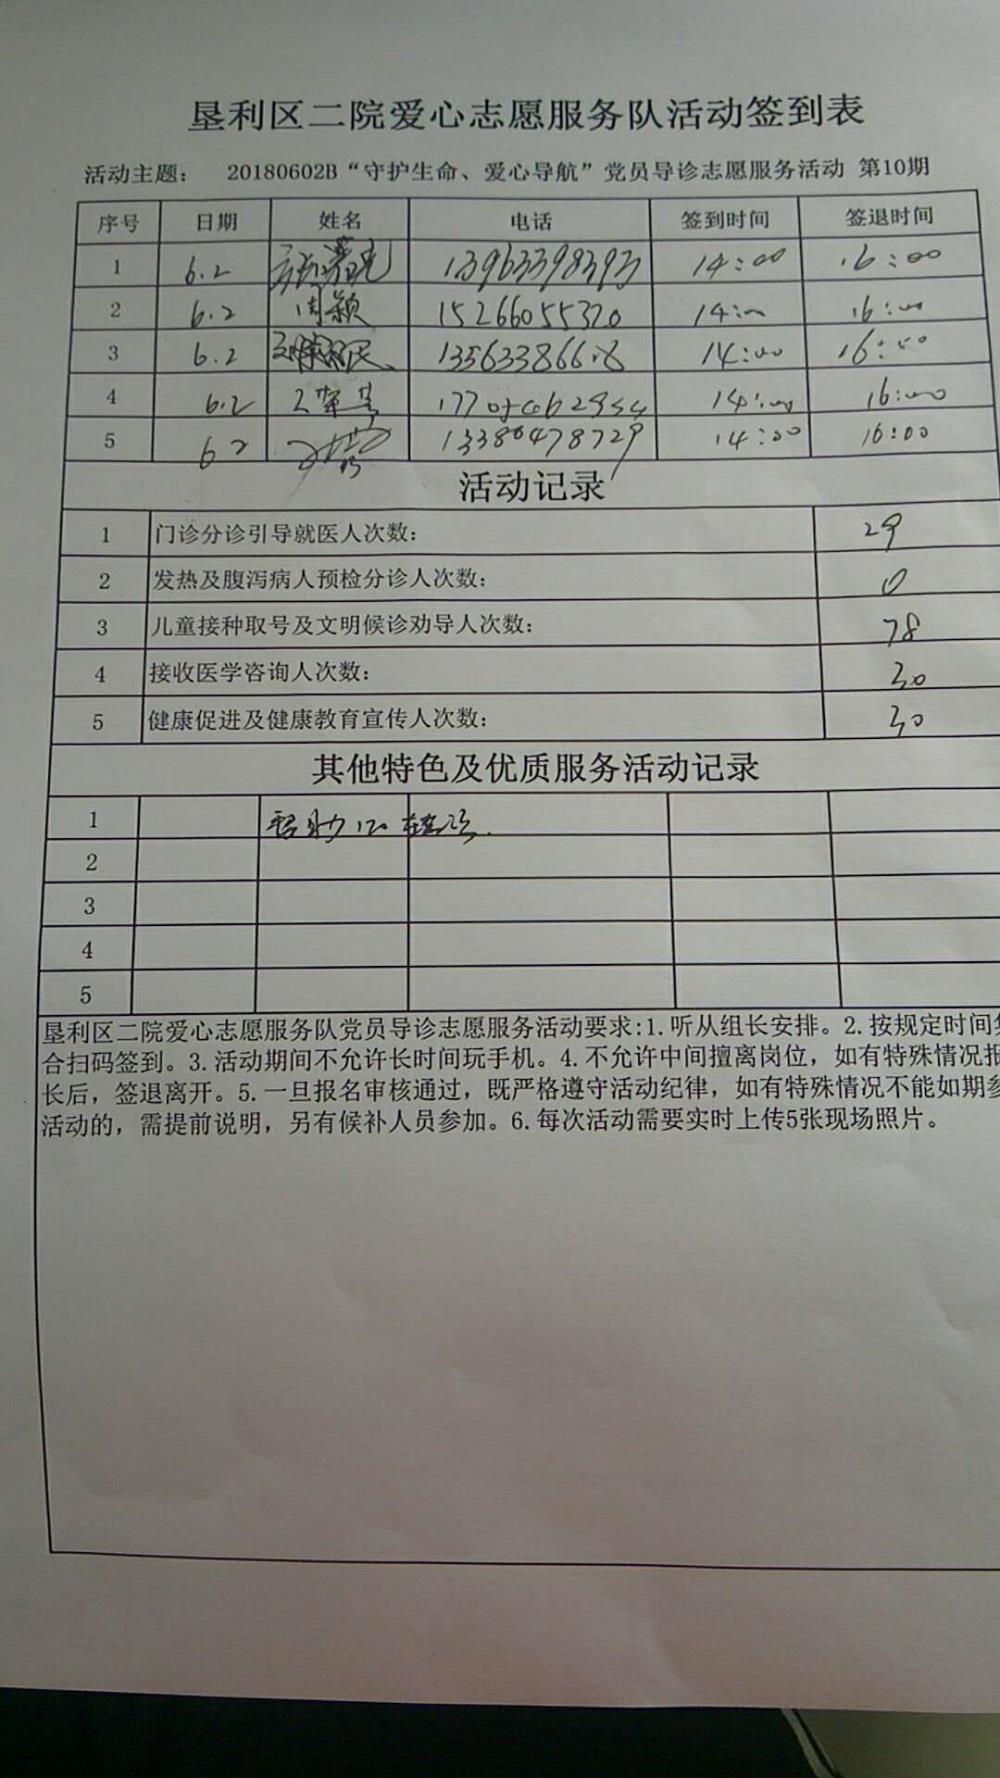 垦利区二院爱心志愿服务队活动签到表
活动主题： 20180602B“守护生命、爱心导航”党员导诊志愿服务活动 第10期
序号 日期 姓名 电话 签到时间 签退时间
1 6.2 13963398393 14:00 16:00
2 6.2 周颖 15266055320 14:00 16:00
3 6.2 14:00 16:00
4 6.2 14:00 16:00
5 6.2 13380478729 14:00 16:00
活动记录
1 门诊分诊引导就医人次数： 29
2 发热及腹泻病人预检分诊人次数： 0
3 儿童接种取号及文明候诊劝导人次数： 78
4 接收医学咨询人次数： 30
5 健康促进及健康教育宣传人次数： 30
其他特色及优质服务活动记录
1
2
3
4
5
垦利区二院爱心志愿服务队党员导诊志愿服务活动要求：1.听从组长安排。2.按规定时间
合扫码签到。3.活动期间不允许长时间玩手机。4.不允许中间擅离岗位，如有特殊情况报
长后，签退离开。5.一旦报名审核通过，既严格遵守活动纪律，如有特殊情况不能如期参
活动的，需提前说明，另有候补人员参加。6.每次活动需要实时上传5张现场照片。